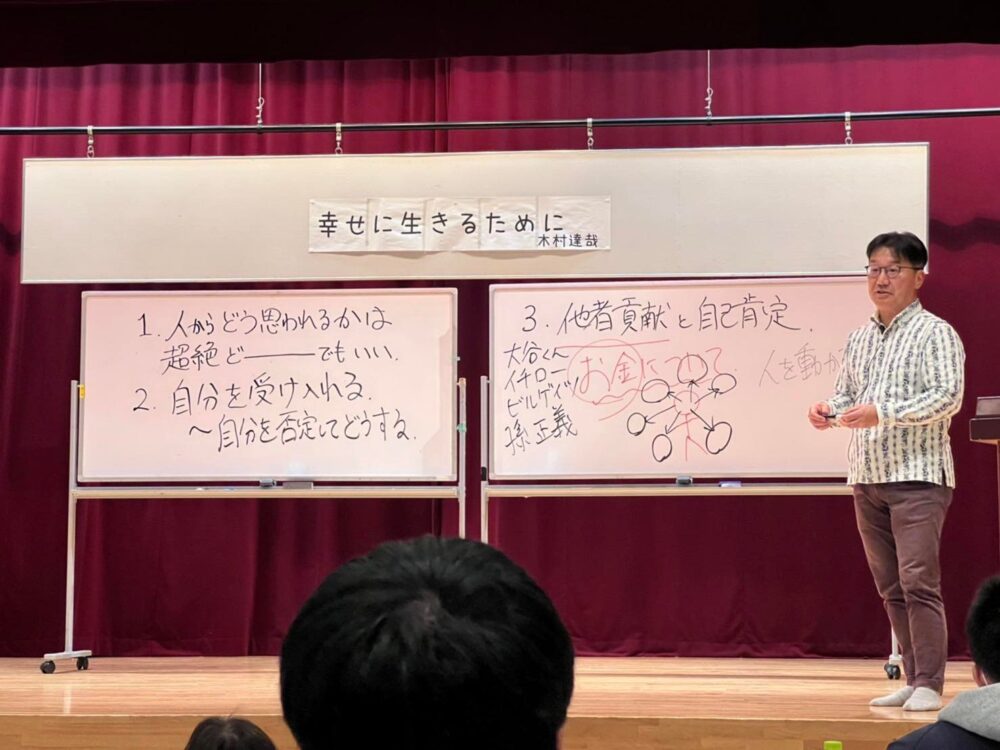 幸せに生きるために
木村達哉
1. 人からどう思われるかは
超絶ど――でもいい.
2. 自分を受け入れる.
～自分を否定してどうする.
3. 他者貢献と自己肯定.
大谷くん
イチロー
ビルゲイツ
孫正義
お金につめる
人を動か